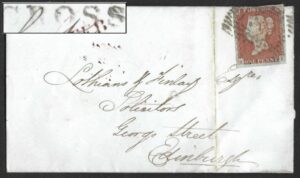 CROSS
Lothians & Finlay Esqrs
Solicitors
George Street
Edinburgh
ONE PENNY